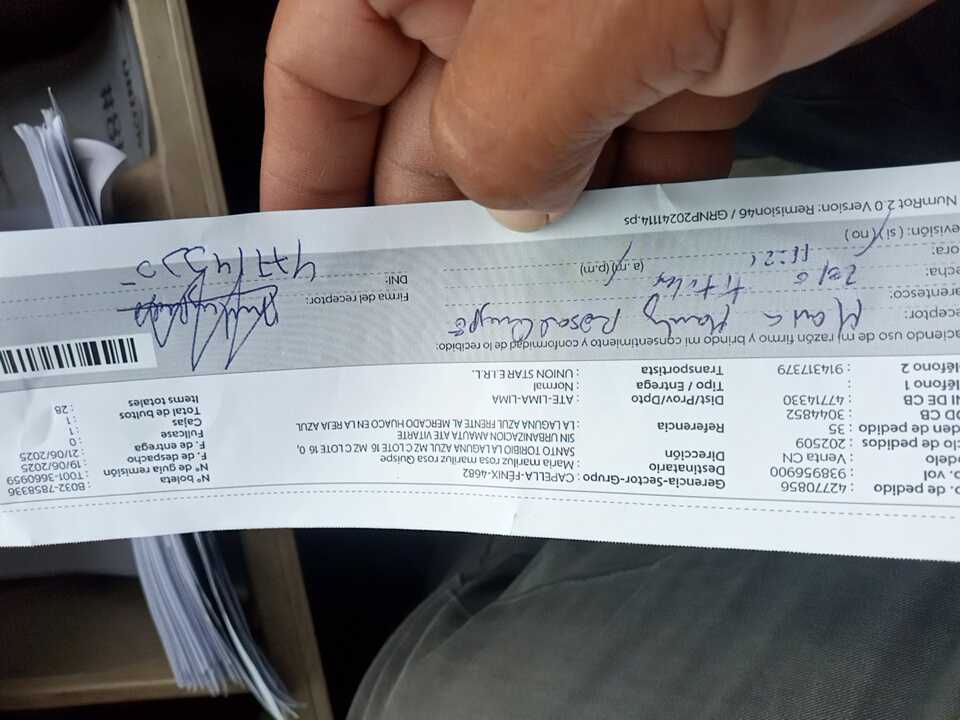 o. de pedido : 42770856
o. vol. : 9389956900
odelo : Venta CN
clo de pedidos : 202509
den de pedido : 35
OD CB : 3044852
NI DE CB : 47714330
eléfono 1 :
eléfono 2 : 914317379
Gerencia-Sector-Grupo : CAPELLA-FENIX-4682
Destinatario : María mariluz rosa mariluz rosa Quispe
Dirección : SANTO TORIBIO LA LAGUNA AZUL MZ C LOTE 16 MZ C LOTE 16, 0,
SIN URBANIZACION AMAUTA ATE VITARTE
Referencia : LA LAGUNA AZUL FRENTE AL MERCADO HUAICO EN LA REJA AZUL
Dist/Prov/Dpto : ATE-LIMA-LIMA
Tipo / Entrega : Normal
Transportista : UNION STAR E.I.R.L.
N° boleta : B032-7858336
N° de guía remisión : T001-3660959
F. de despacho : 19/06/2025
F. de entrega : 21/06/2025
Fullcase : 0
Cajas : 1
Total de bultos : 1
Items totales : 28
aciendo uso de mi razón firmo y brindo mi consentimiento y conformidad de lo recibido:
eceptor: Maria
arentesco: titular
echa:
ora: 11:21 (a.m) (p.m)
evisión: ( si) (no )
Firma del receptor:
DNI: 47714330
NumRot 2.0 Version: Remision46 / GRNP20241114.ps